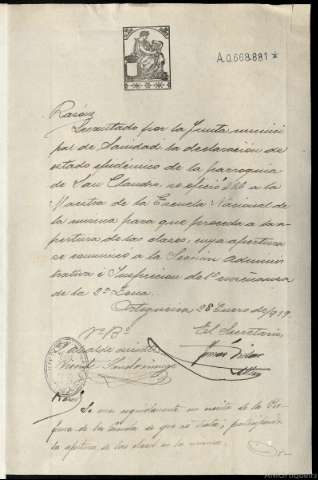 A.0.668.881 *
Razón
Levantado por la Junta munici
pal de Sanidad la declaración de
estado epidémico de la parroquia
de San Claudio, se ofició a la
Maestra de la Escuela Nacional de
la misma para que proceda a la a-
pertura de las clases, cuya apertura
se comunicó a la Sección Adminis-
trativa é Inspección de 1ª enseñanza
de la 2ª Zona.
Ortigueira 28 Enero de 1919.
Vº Bº El Secretario
El Alcalde
Razón
Se une seguidamente un escrito de la
de que se trata, participando
la apertura de las clases en la misma.